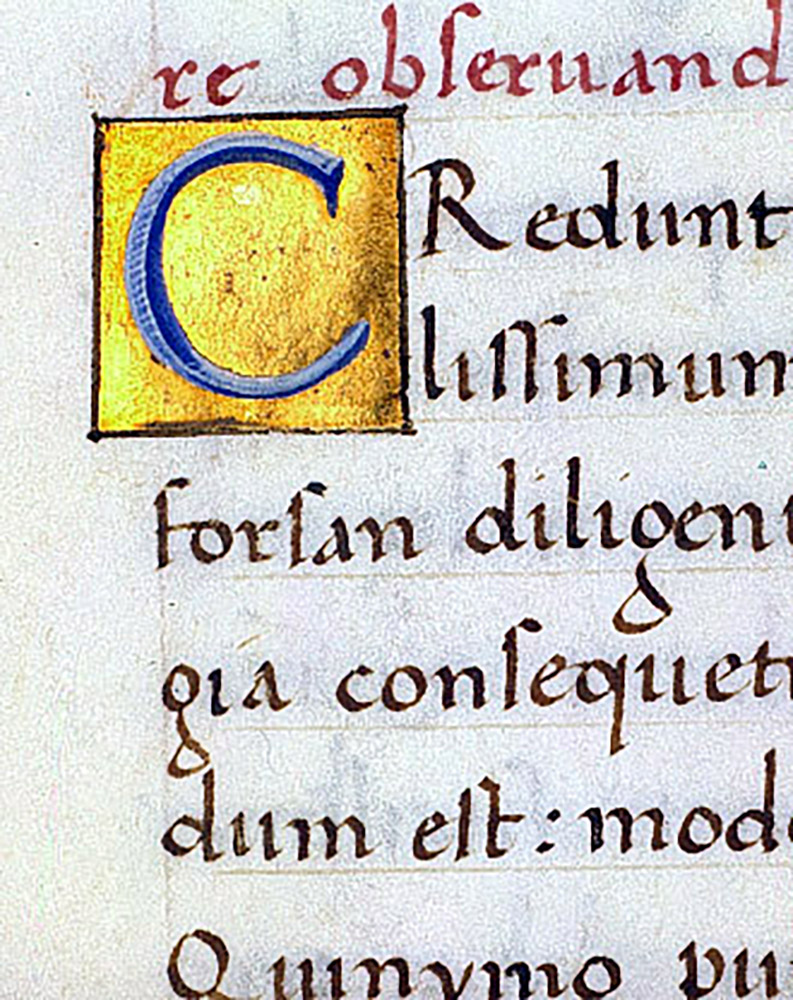 re obſeruand
CRedunt
liſſimum
forſan diligen
gia conſequet
dum eſt: mod
Quinymo pu